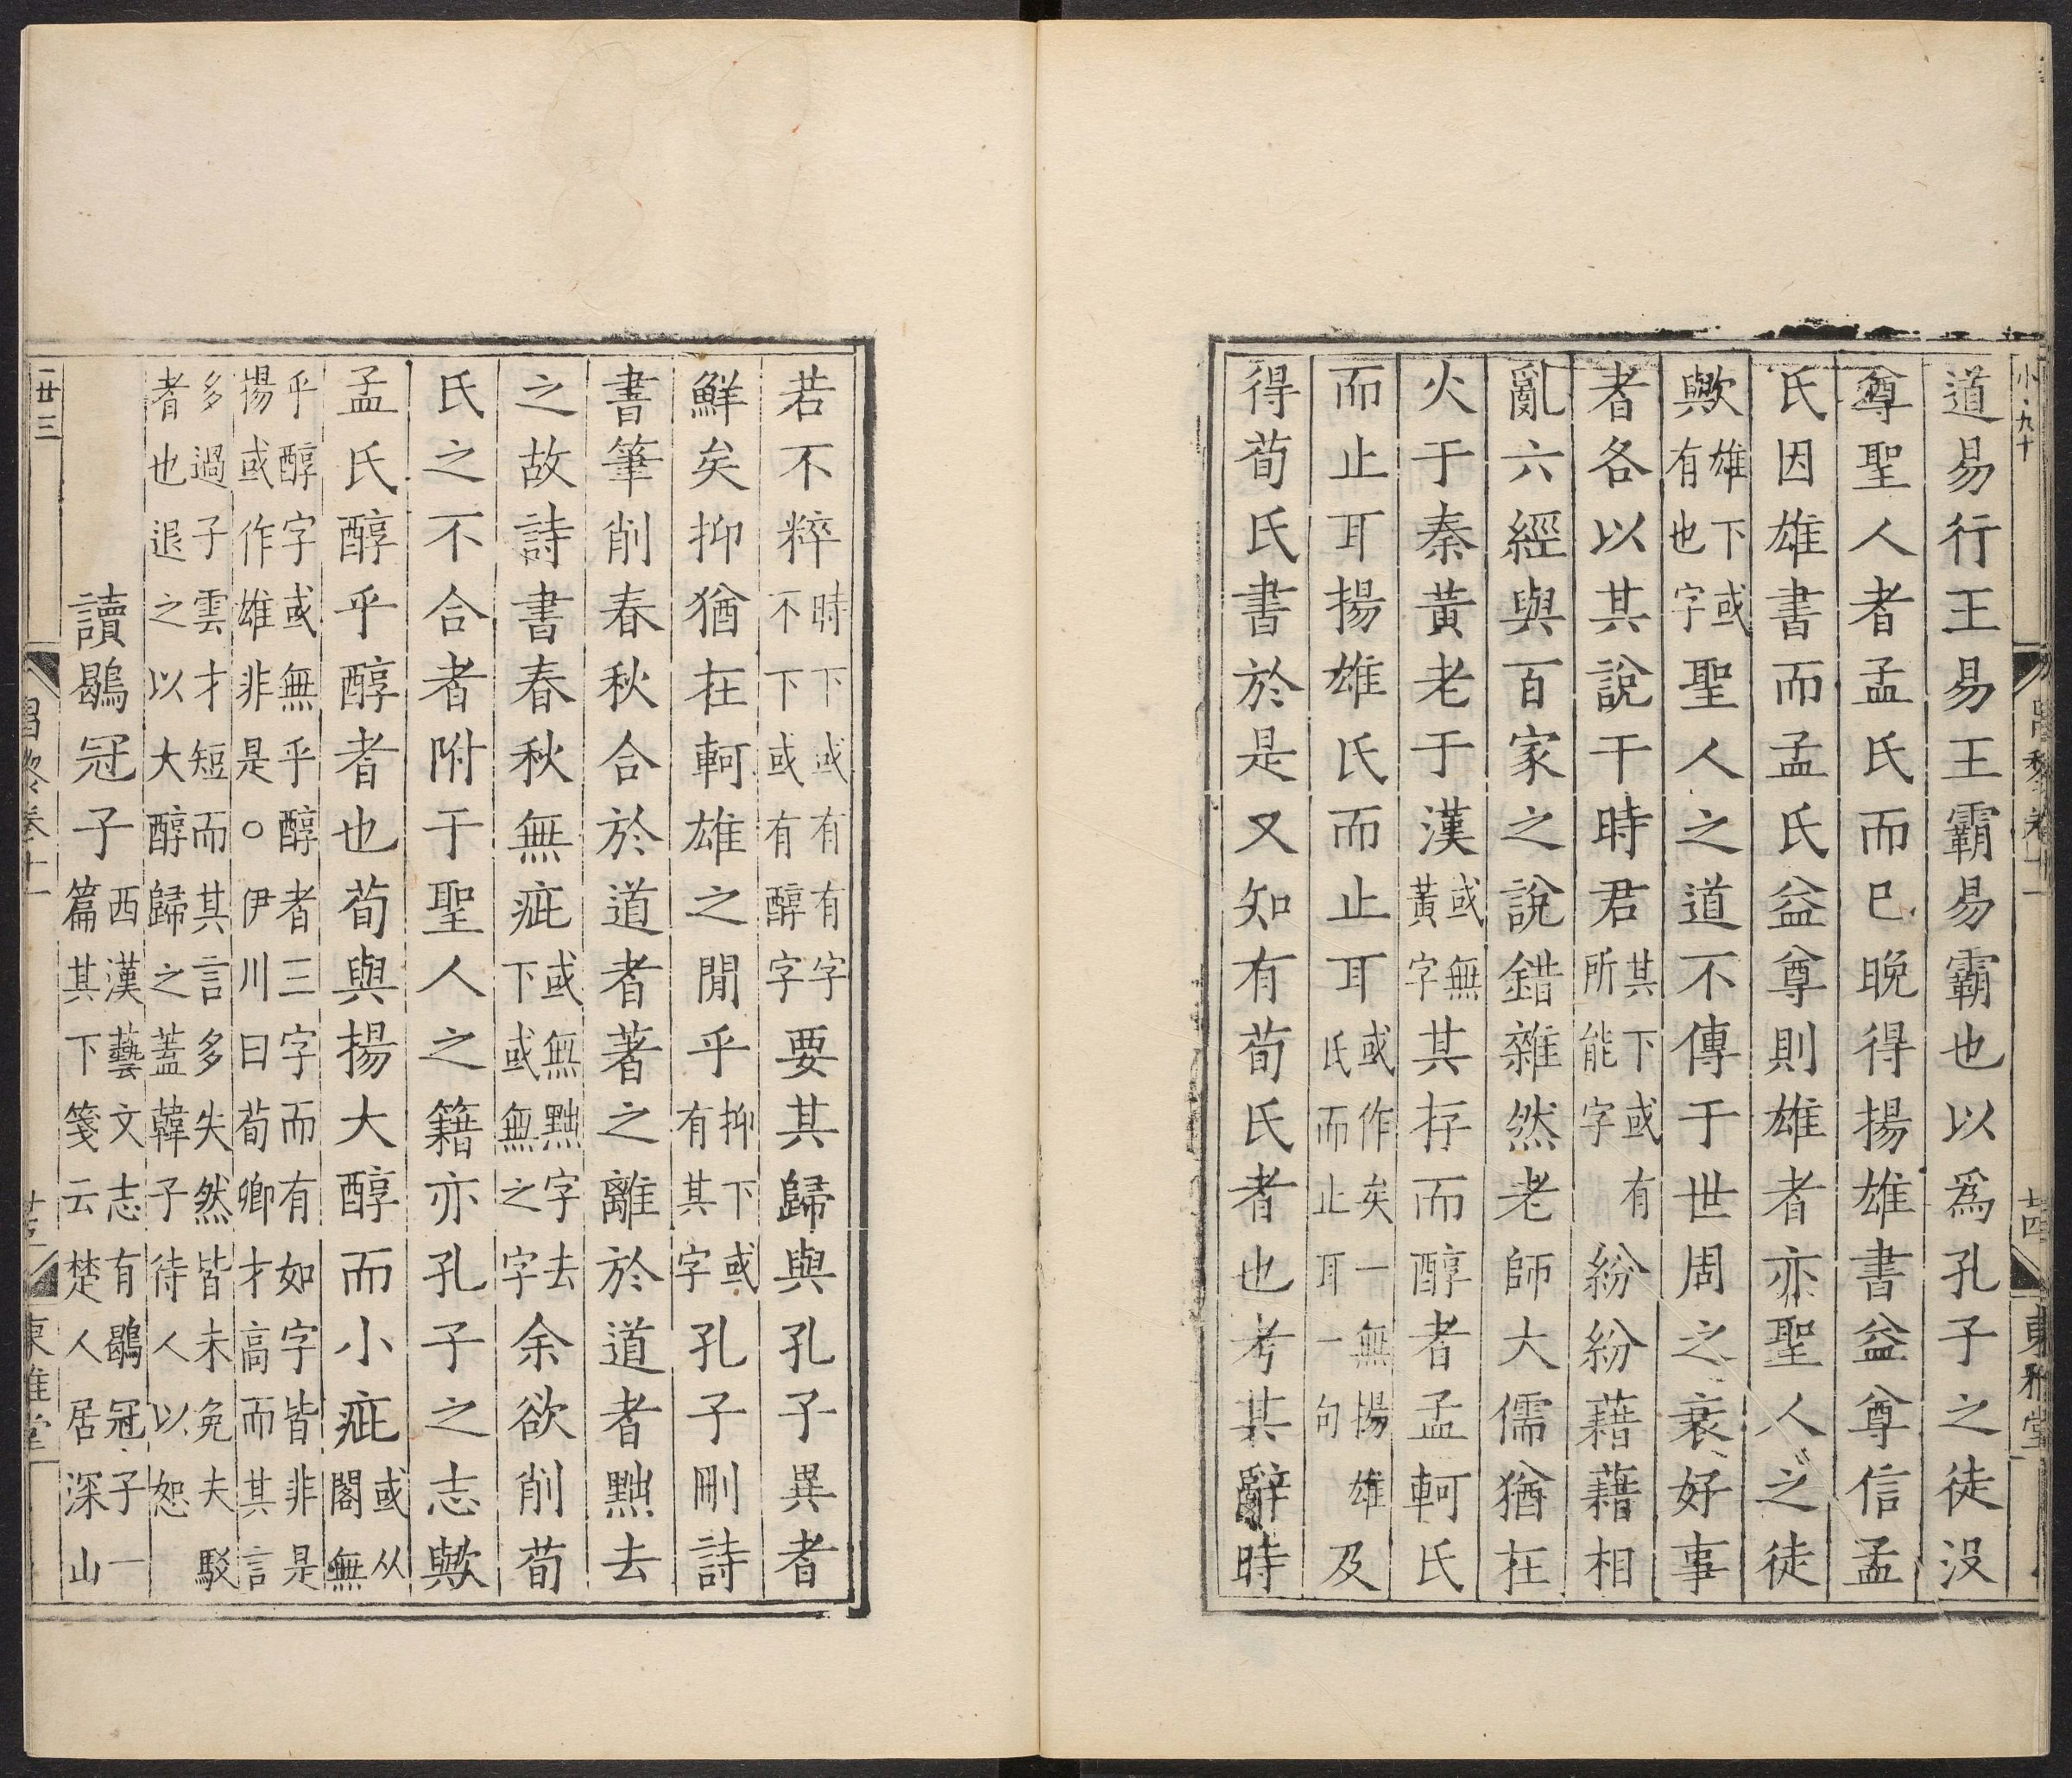 小九十
道易行王易王霸易霸也以爲孔子之徒没
尊聖人者孟氏而已晚得揚雄書益尊信孟
氏因雄書而孟氏益尊則雄者亦聖人之徒
歟雄下或有也字聖人之道不傳于世周之衰好事
者各以其說干時君其下或有所能字紛紛藉藉相
亂六經與百家之說錯雜然老師大儒猶在
火于秦黃老于漢或無黃字其存而醇者孟軻氏
而止耳揚雄氏而止耳或作矣一無揚雄氏而止耳一句及
得荀氏書於是又知有荀氏者也考其辭時
昌黎卷十一
廿四
東雅堂
若不粹時下或有有字不下下或有醇字要其歸與孔子異者
鮮矣抑猶在軻雄之閒乎抑下或有其字孔子刪詩
書筆削春秋合於道者著之離於道者黜去
之故詩書春秋無疵或無黜字去下或無之字余欲削荀
氏之不合者附于聖人之籍亦孔子之志歟
孟氏醇乎醇者也荀與揚大醇而小疵或从閣無
乎醇字或無乎醇者三字而有如字皆非是揚或作雄非是○伊川曰荀卿才高而其言
多過子雲才短而其言多失然皆未免夫駁者也退之以大醇歸之蓋韓子待人以恕
讀鶡冠子西漢藝文志有鶡冠子一篇其下箋云楚人居深山
廿三
昌黎卷十一
東雅堂